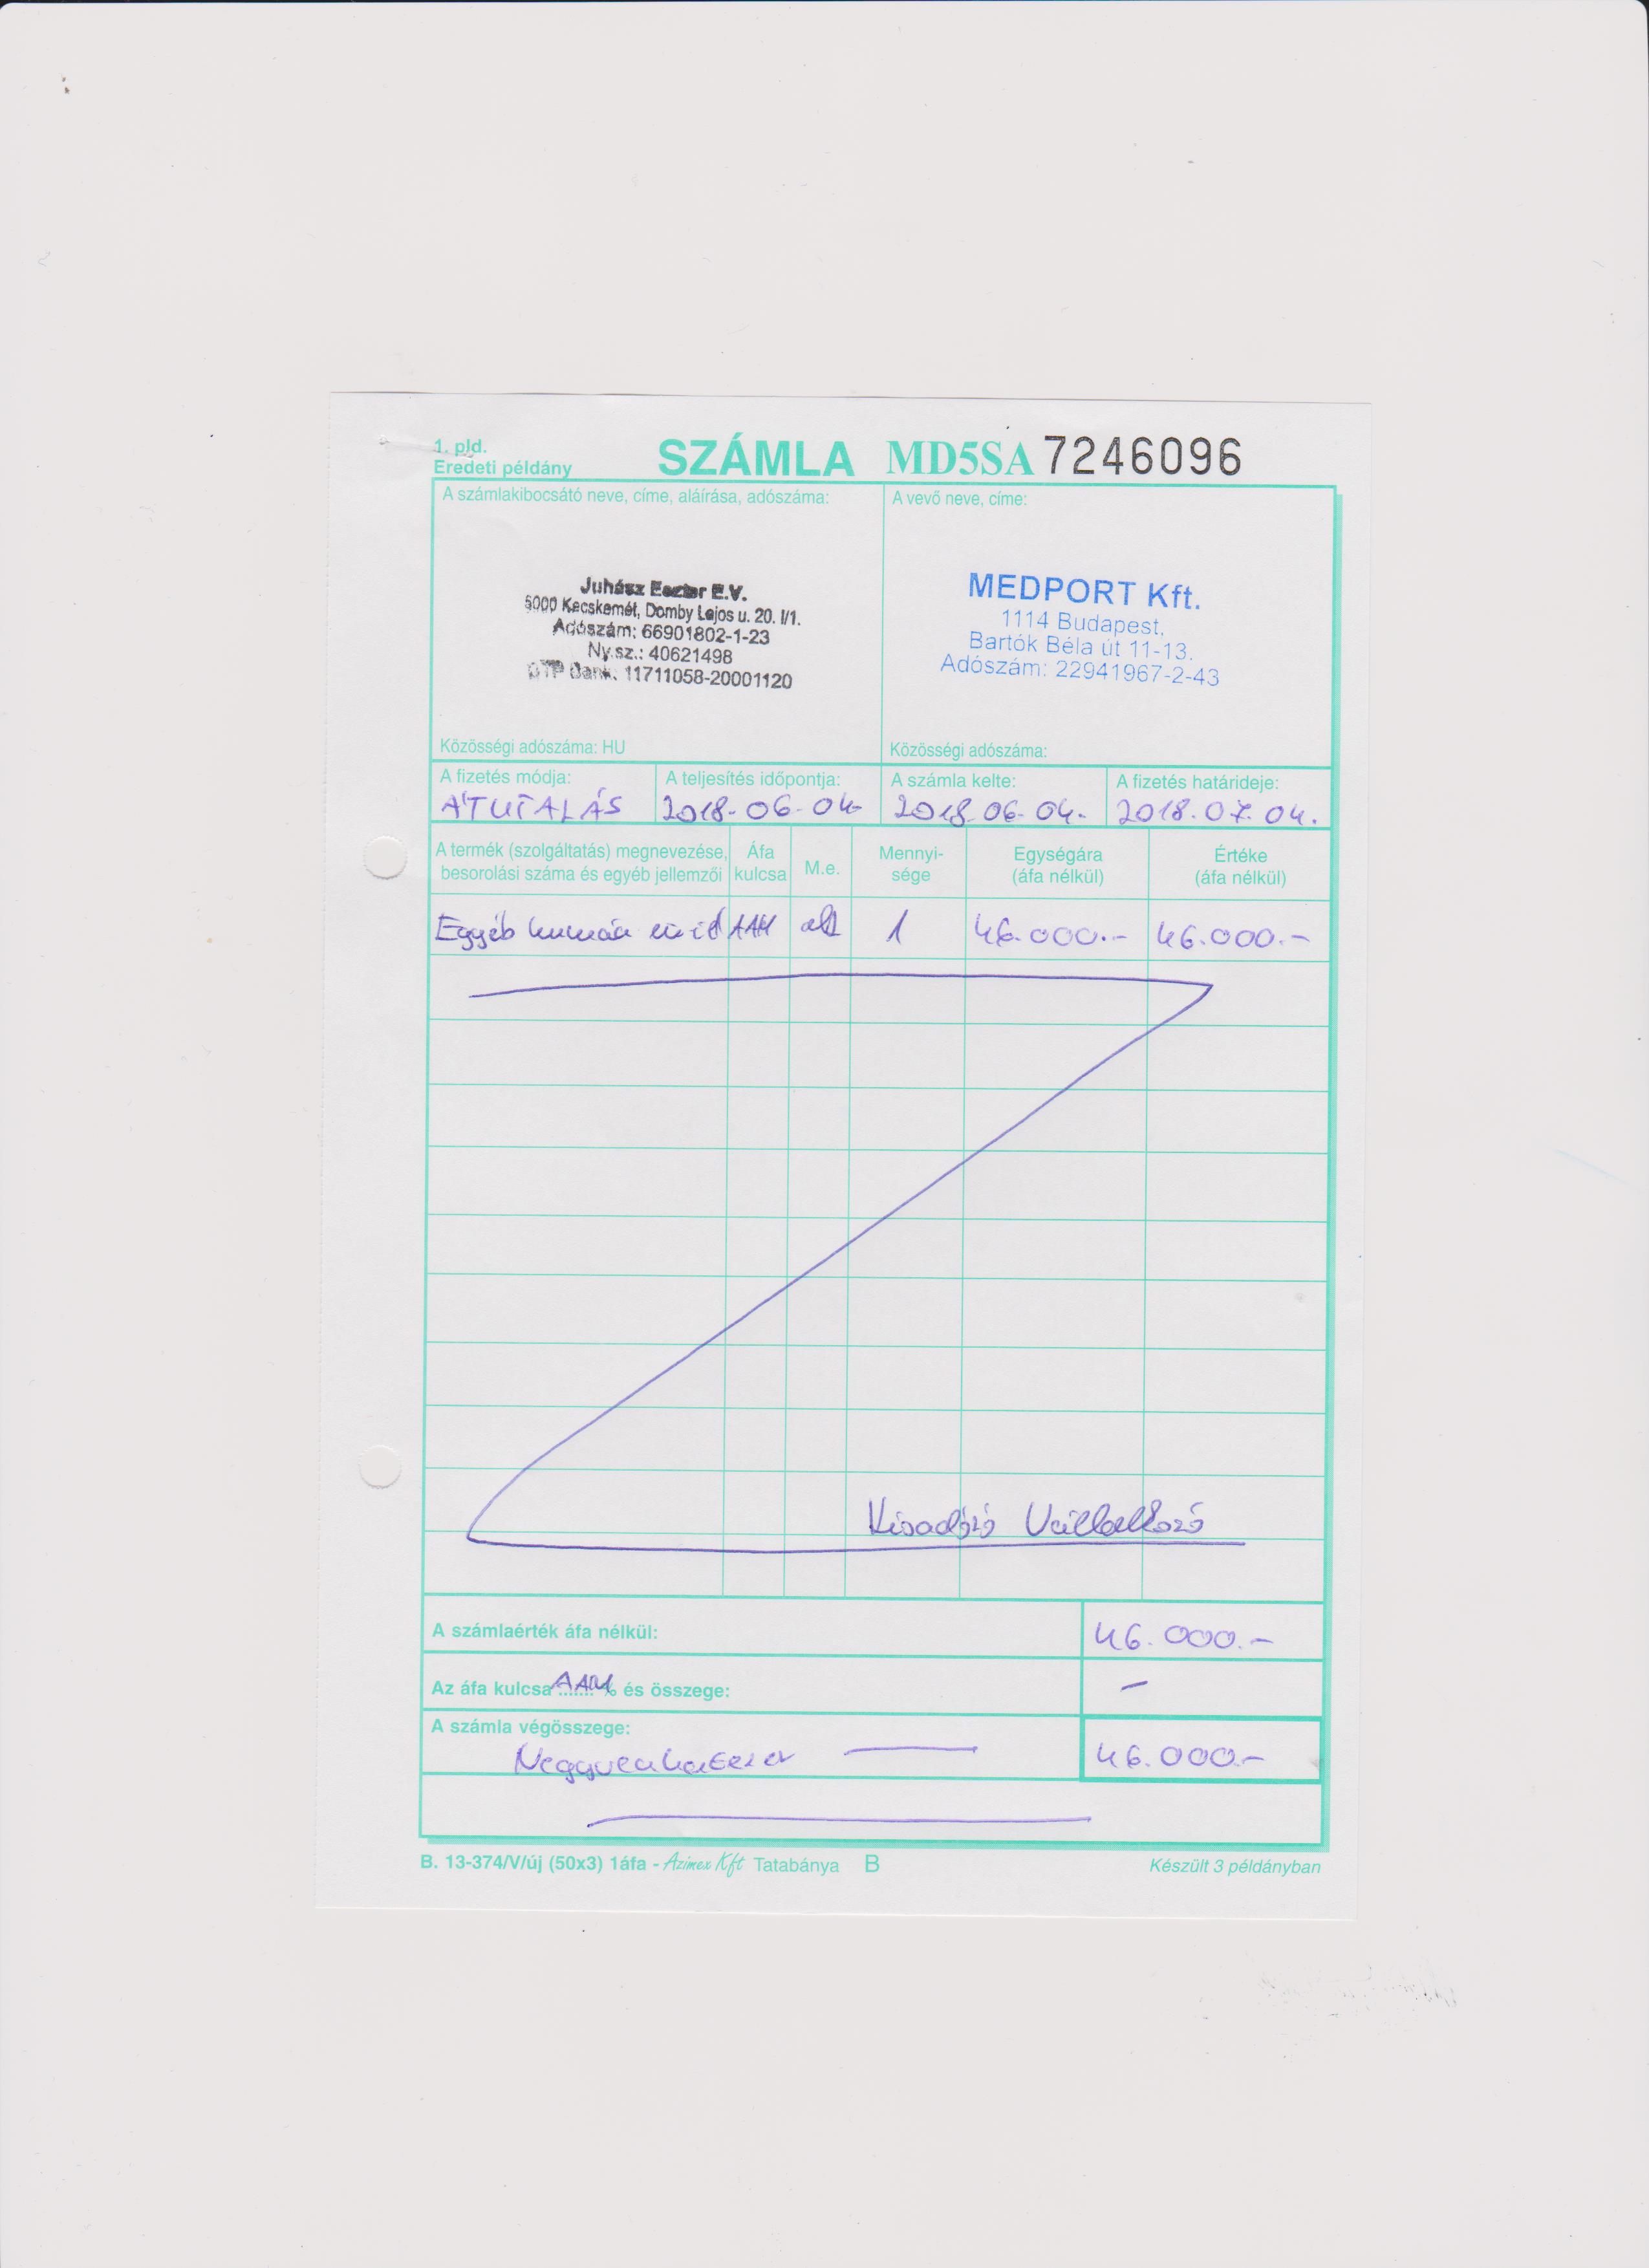 1. pld.
Eredeti példány
SZÁMLA MD5SA 7246096
A számlakibocsátó neve, címe, aláírása, adószáma:
A vevő neve, címe:
Juhász Eszter E.V.
6000 Kecskemét, Domby Lajos u. 20. I/1.
Adószám: 66901802-1-23
Ny.sz.: 40621498
OTP Bank. 11711058-20001120
MEDPORT Kft.
1114 Budapest,
Bartók Béla út 11-13.
Adószám: 22941967-2-43
Közösségi adószáma: HU
Közösségi adószáma:
A fizetés módja:
ÁTUTALÁS
A teljesítés időpontja:
2018-06-04
A számla kelte:
2018.06.04.
A fizetés határideje:
2018.07.04.
A termék (szolgáltatás) megnevezése,
besorolási száma és egyéb jellemzői
Áfa
kulcsa
M.e.
Mennyi-
sége
Egységára
(áfa nélkül)
Értéke
(áfa nélkül)
Egyéb humán AAM 1 46.000.- 46.000.-
Kisadózó Vállalkozó
A számlaérték áfa nélkül: 46.000.-
Az áfa kulcsa AAM % és összege: –
A számla végösszege:
Negyvenhatezer 46.000-
B. 13-374/V/új (50x3) 1áfa - Azimex Kft Tatabánya B
Készült 3 példányban